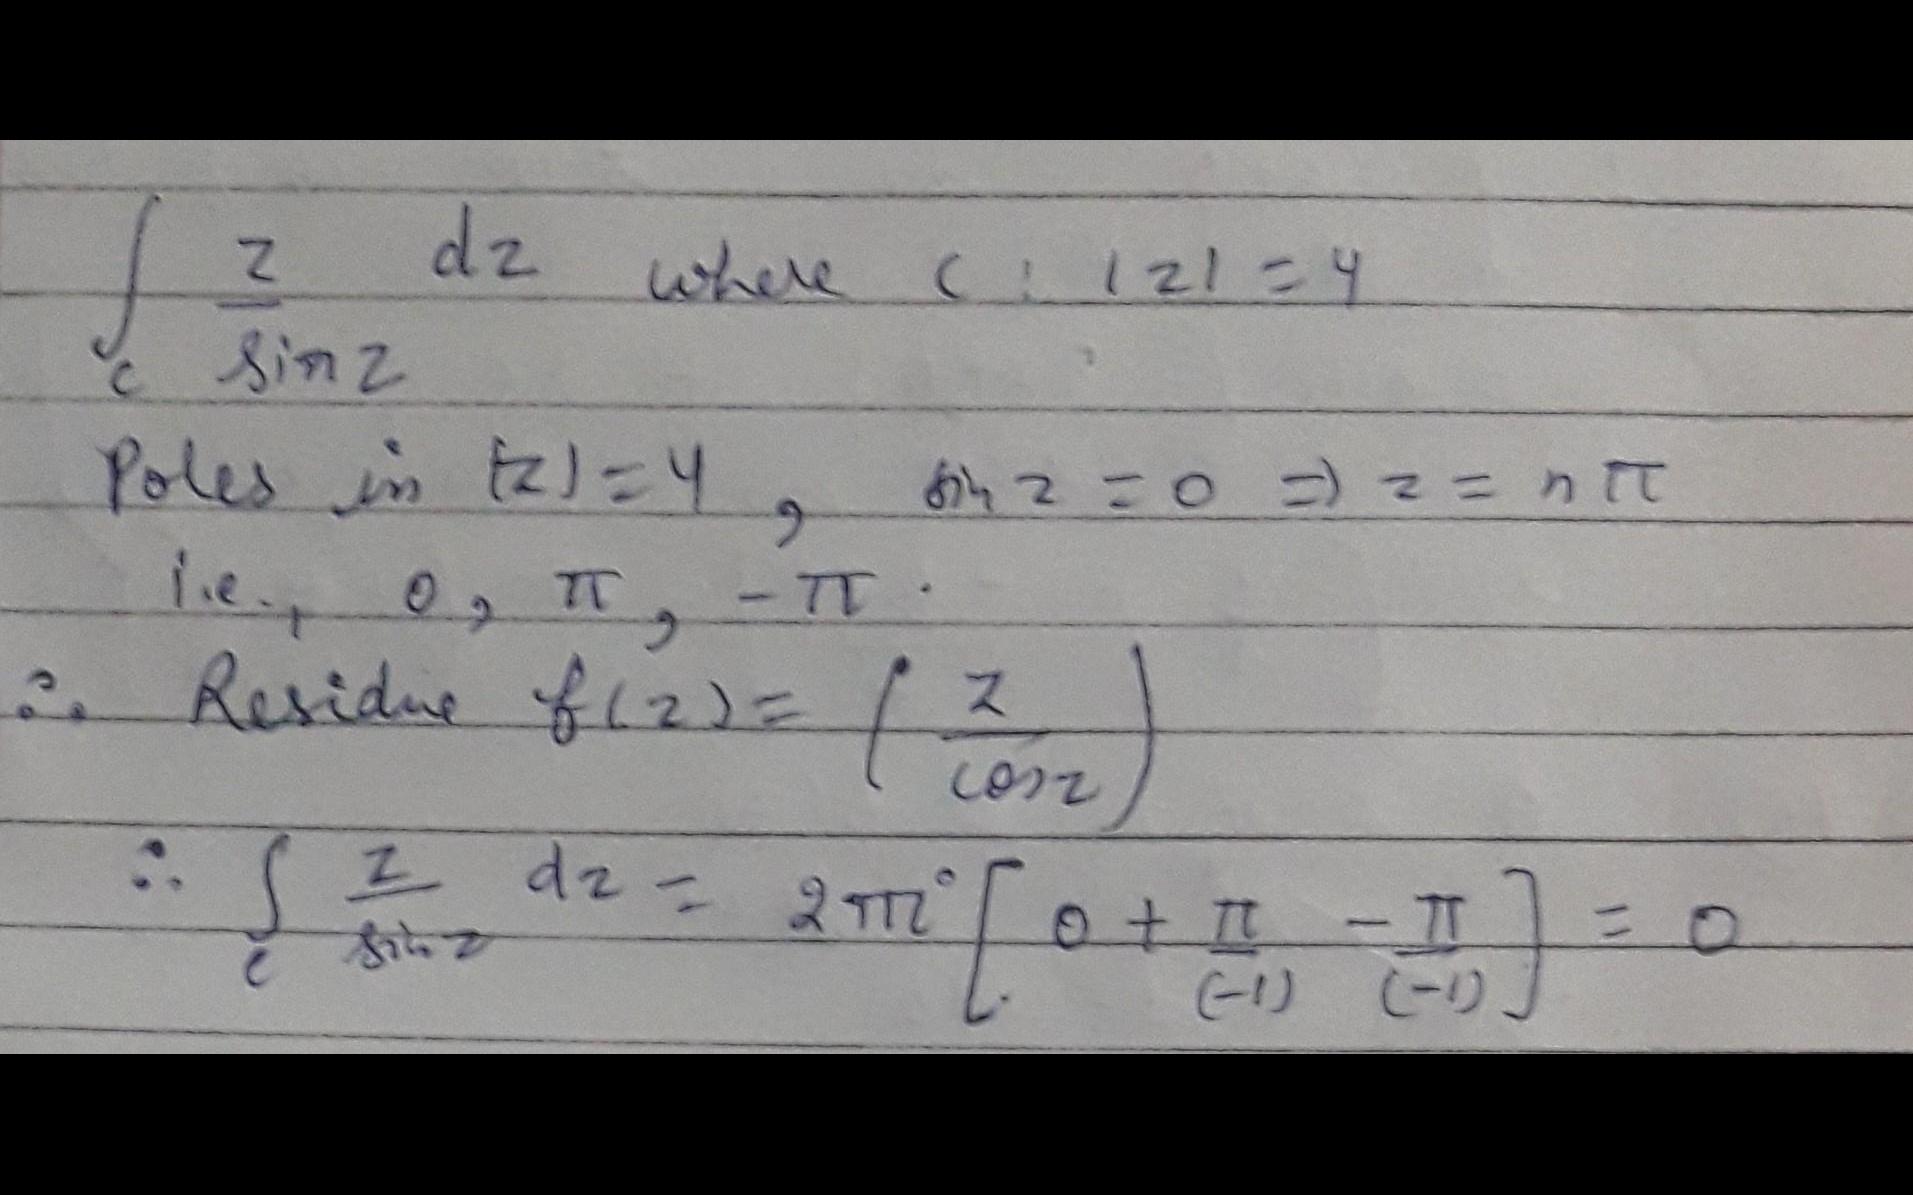 ∫_C z/sin z dz where C : |z| = 4
Poles in |z| = 4 , sin z = 0 ⇒ z = nπ
i.e., 0, π, -π.
∴ Residue f(z) = (z/cos z)
∴ ∫_C z/sin z dz = 2πi [0 + π/(-1) - π/(-1)] = 0